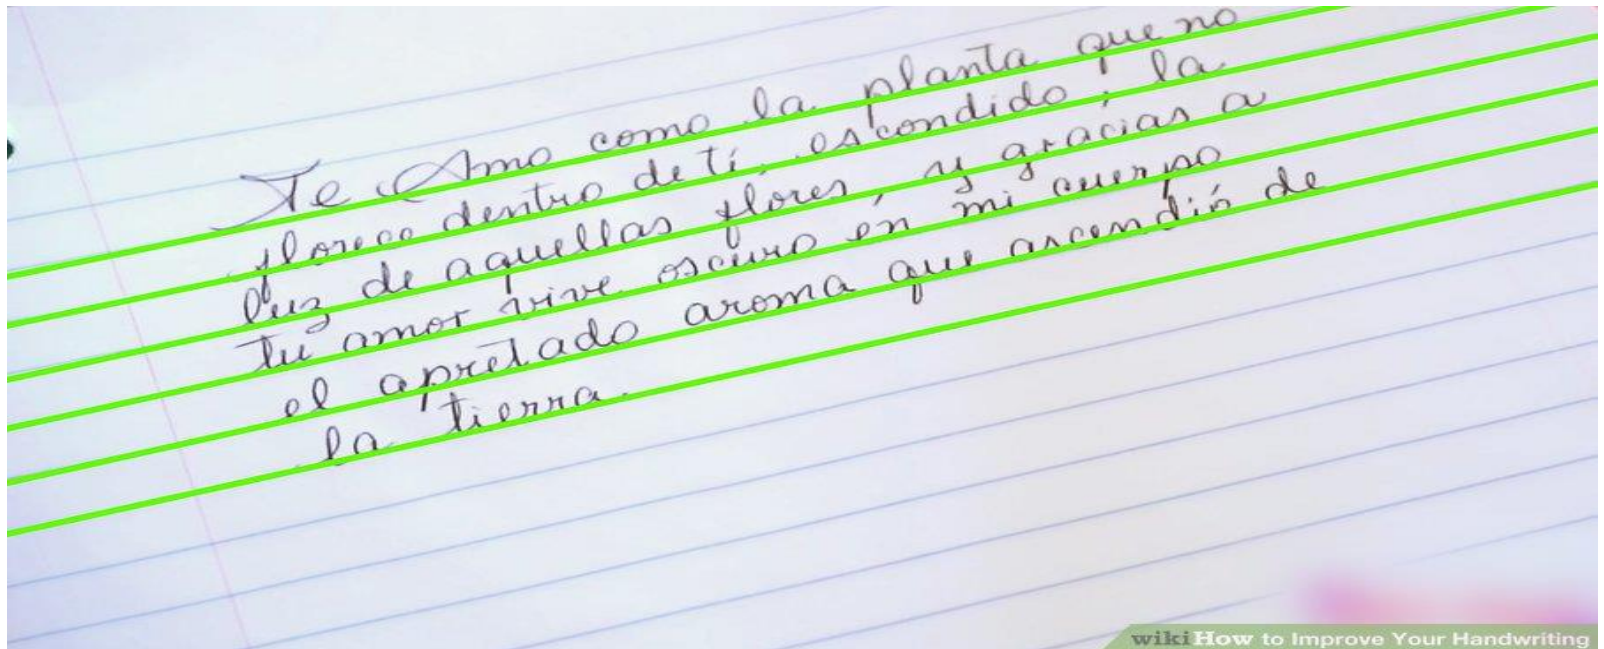 Te Amo como la planta que no
florece dentro de ti, escondido, la
luz de aquellas flores, y gracias a
tu amor vive oscuro en mi cuerpo
el apretado aroma que ascendió de
la tierra.
wikiHow to Improve Your Handwriting